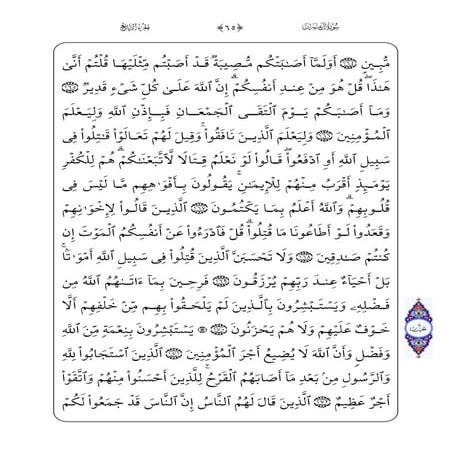 ﴿٦٥﴾
مُّبِينٍ أَوَلَمَّآ أَصَٰبَتۡكُم مُّصِيبَةٞ قَدۡ أَصَبۡتُم مِّثۡلَيۡهَا قُلۡتُمۡ أَنَّىٰ
هَٰذَاۖ قُلۡ هُوَ مِنۡ عِندِ أَنفُسِكُمۡۗ إِنَّ ٱللَّهَ عَلَىٰ كُلِّ شَيۡءٖ قَدِيرٞ
وَمَآ أَصَٰبَكُمۡ يَوۡمَ ٱلۡتَقَى ٱلۡجَمۡعَانِ فَبِإِذۡنِ ٱللَّهِ وَلِيَعۡلَمَ
ٱلۡمُؤۡمِنِينَ وَلِيَعۡلَمَ ٱلَّذِينَ نَافَقُواْۚ وَقِيلَ لَهُمۡ تَعَالَوۡاْ قَٰتِلُواْ فِي
سَبِيلِ ٱللَّهِ أَوِ ٱدۡفَعُواْۖ قَالُواْ لَوۡ نَعۡلَمُ قِتَالٗا لَّٱتَّبَعۡنَٰكُمۡۗ هُمۡ لِلۡكُفۡرِ
يَوۡمَئِذٍ أَقۡرَبُ مِنۡهُمۡ لِلۡإِيمَٰنِۚ يَقُولُونَ بِأَفۡوَٰهِهِم مَّا لَيۡسَ فِي
قُلُوبِهِمۡۗ وَٱللَّهُ أَعۡلَمُ بِمَا يَكۡتُمُونَ ٱلَّذِينَ قَالُواْ لِإِخۡوَٰنِهِمۡ
وَقَعَدُواْ لَوۡ أَطَاعُونَا مَا قُتِلُواْۗ قُلۡ فَٱدۡرَءُواْ عَنۡ أَنفُسِكُمُ ٱلۡمَوۡتَ إِن
كُنتُمۡ صَٰدِقِينَ وَلَا تَحۡسَبَنَّ ٱلَّذِينَ قُتِلُواْ فِي سَبِيلِ ٱللَّهِ أَمۡوَٰتَۢاۚ
بَلۡ أَحۡيَآءٌ عِندَ رَبِّهِمۡ يُرۡزَقُونَ فَرِحِينَ بِمَآ ءَاتَىٰهُمُ ٱللَّهُ مِن
فَضۡلِهِۦ وَيَسۡتَبۡشِرُونَ بِٱلَّذِينَ لَمۡ يَلۡحَقُواْ بِهِم مِّنۡ خَلۡفِهِمۡ أَلَّا
خَوۡفٌ عَلَيۡهِمۡ وَلَا هُمۡ يَحۡزَنُونَ ۞ يَسۡتَبۡشِرُونَ بِنِعۡمَةٖ مِّنَ ٱللَّهِ
وَفَضۡلٖ وَأَنَّ ٱللَّهَ لَا يُضِيعُ أَجۡرَ ٱلۡمُؤۡمِنِينَ ٱلَّذِينَ ٱسۡتَجَابُواْ لِلَّهِ
وَٱلرَّسُولِ مِنۢ بَعۡدِ مَآ أَصَابَهُمُ ٱلۡقَرۡحُۚ لِلَّذِينَ أَحۡسَنُواْ مِنۡهُمۡ وَٱتَّقَوۡاْ
أَجۡرٌ عَظِيمٌ ٱلَّذِينَ قَالَ لَهُمُ ٱلنَّاسُ إِنَّ ٱلنَّاسَ قَدۡ جَمَعُواْ لَكُمۡ